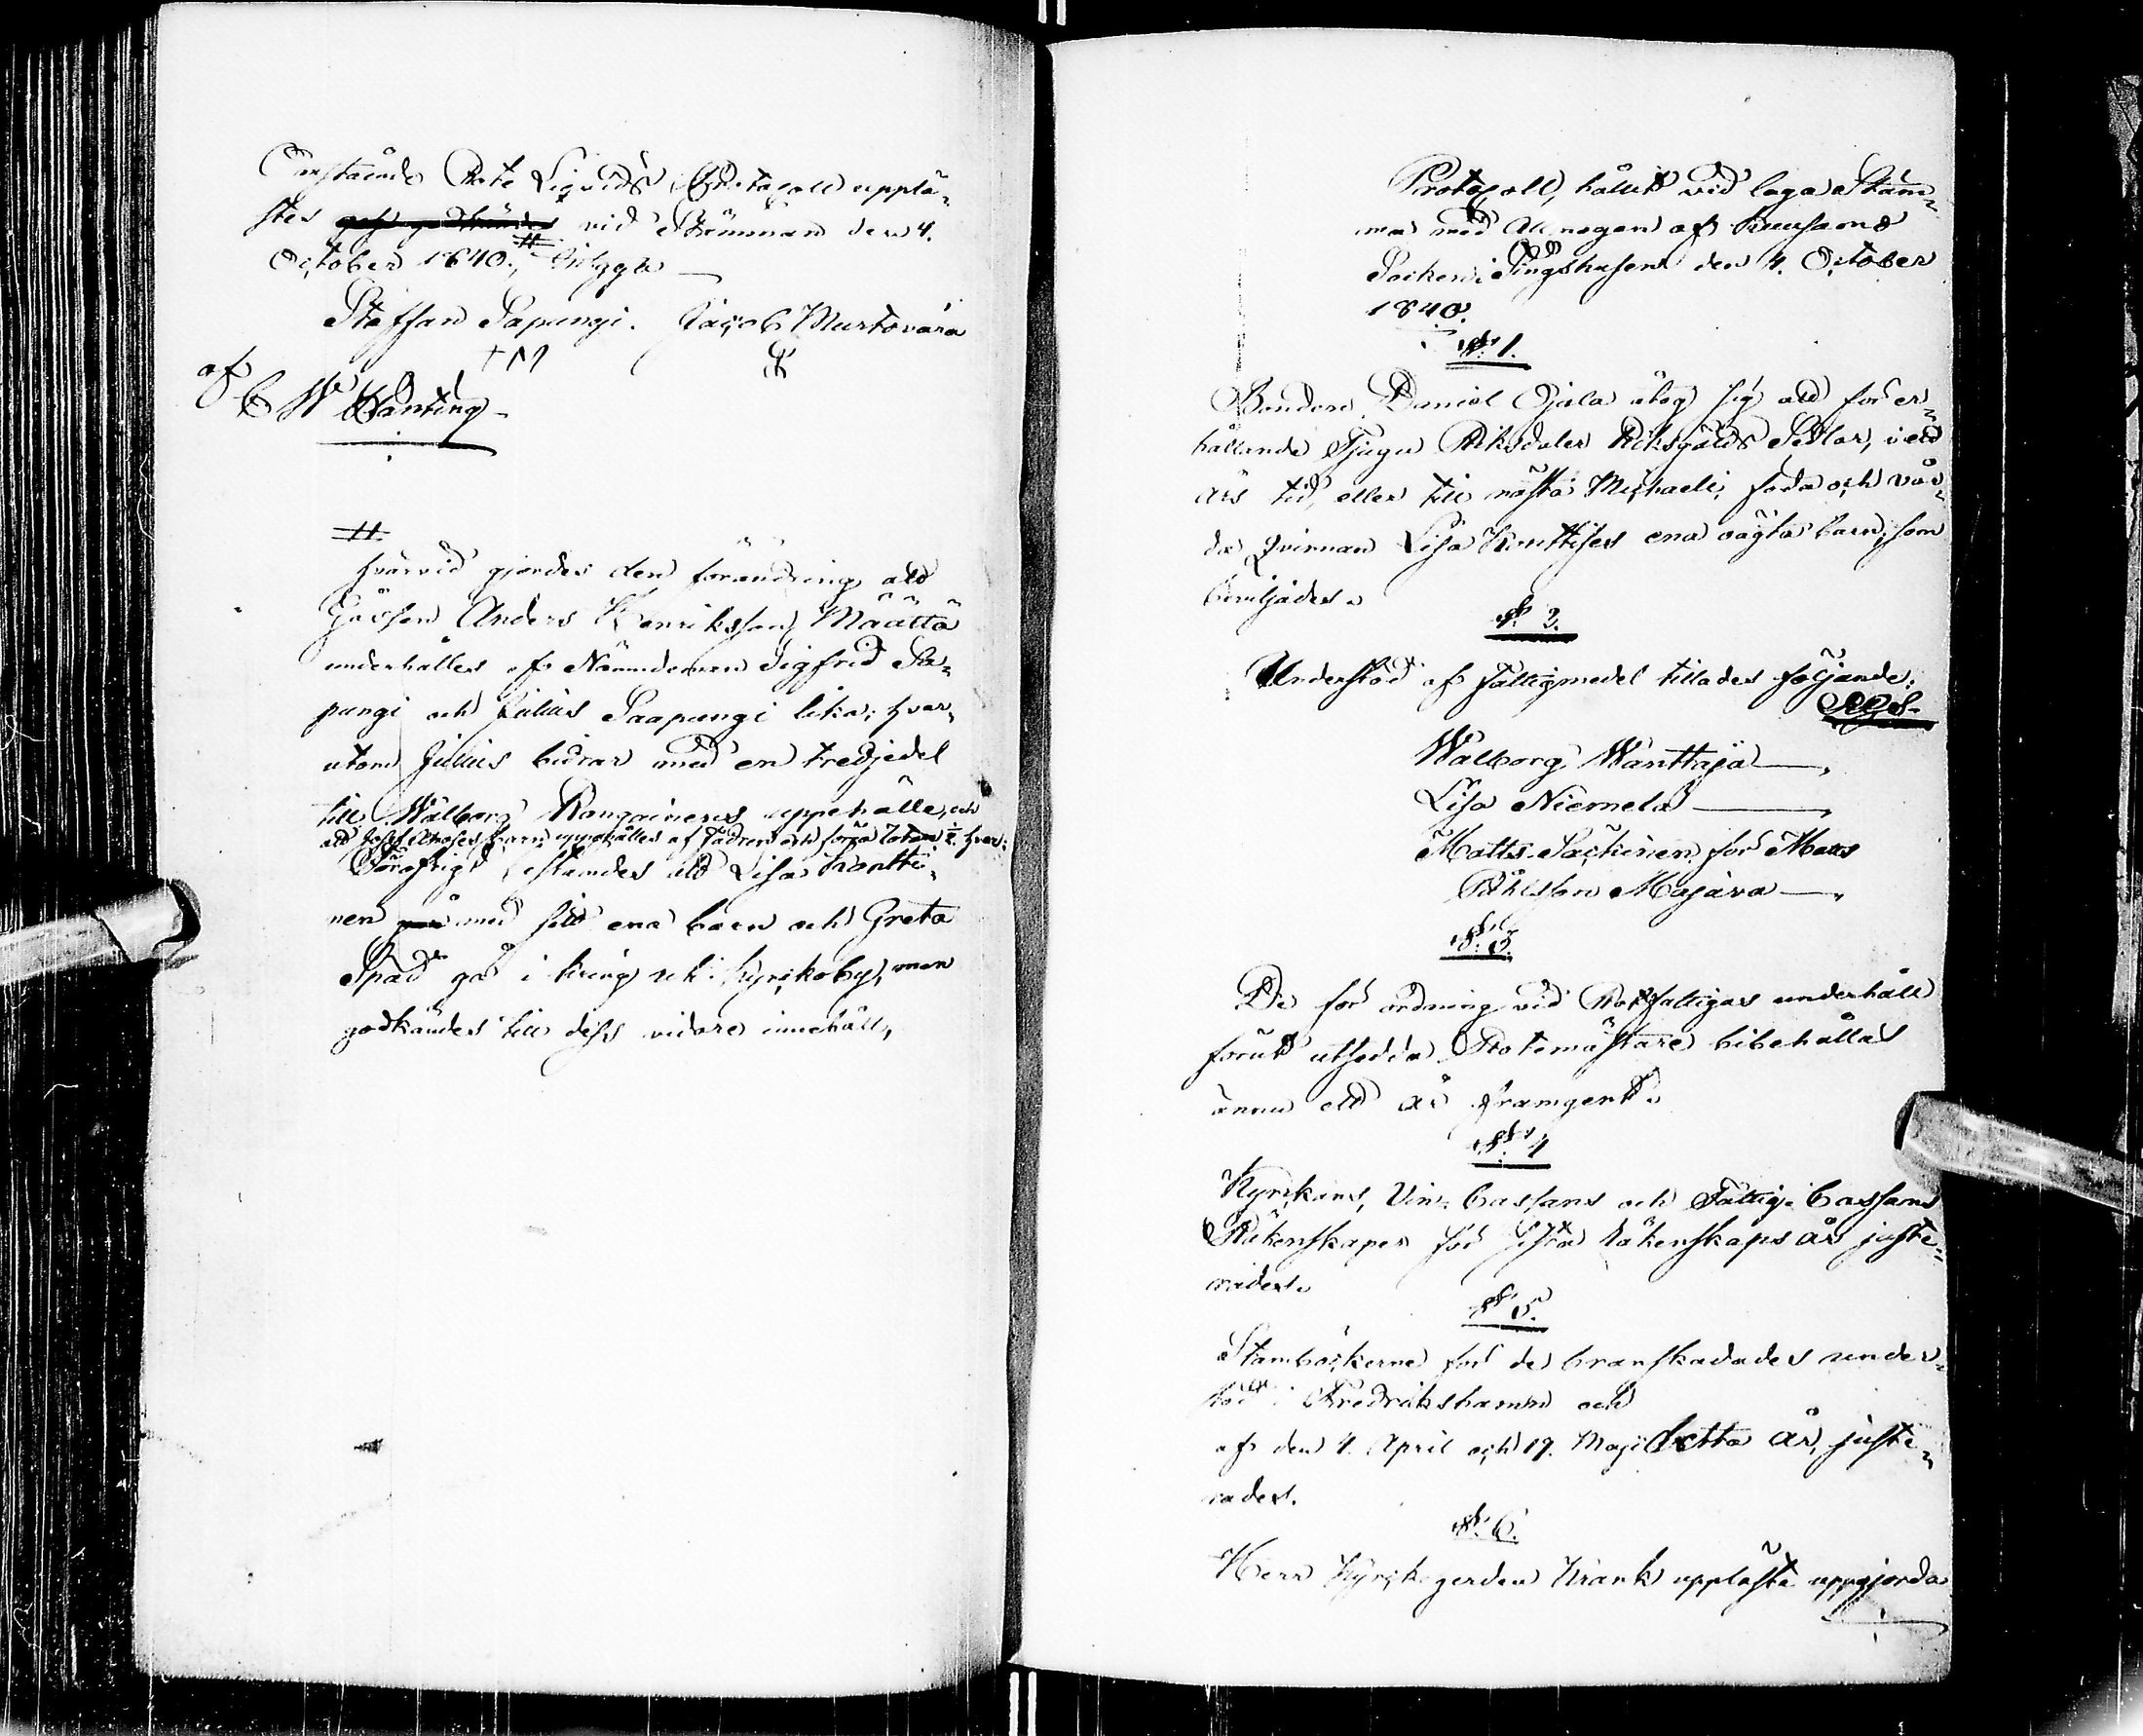 Ofanstående Rote Liqvids Protocoll upplä-
stes och godkändes vid Stämman den 4.
October 1840., betyga
Staffan Sapungi. Jacob Murtovára
af
C W Wänting
#
hvarvid gjordes den förändring att
Gåssen Anders Henriksson Määttä
underhålles af Nämndeman Sigfrid Sa-
pungi och Julius Saapungi lika; hvar-
utom Julius bidrar med en tredjedel
till Walborg Rongainens uppehälle, och
att Josef barn uppehålles af fadren och förra Roten
Föröfrigt bestämdes att Lisa Kontti-
nen med sitt ena barn och Greta
Späd gå i kring uti Kyrckoby, men
godkändes till dess vidare innehåll,
Protocoll, hållit vid laga Stäm-
ma med Allmogen af Kuusamo
Socken i Tingshusen den 4. October
1840.
§. 1.
Bonden Daniel Ojala åtog sig att för er-
hållande Tjugu Riksdaler Riksgälds Sedlar, i ett
års tid, eller till nästa Michaeli, föda och vår-
da Qvinnan Lisa Konttises ena oägta barn; som
beviljades.
§. 2.
Understöd af fattigmedel tillades följande:
RGs.
Walborg Wanttaja —,
Lisa Niemelä —,
Matts Säckinen för Mats
Påhlsson Majava —,
§. 3.
De för ordning vid Rotefattigas underhåll
förut utsedda Rotemästare bibehållas
ännu ett år framgent.
§. 4
Kyrckans, Vin-Cassans och Fattig-Cassans
Räkenskaper för sista räkenskaps år juste-
rades.
§. 5.
Stamböckerne för de branskadades under-
stöd i Fredrikshamn och
af den 4. April och 19. Maji detta år, juste-
rades.
§. 6.
Herr Kyrckoherden Krank uppläste uppgjorda